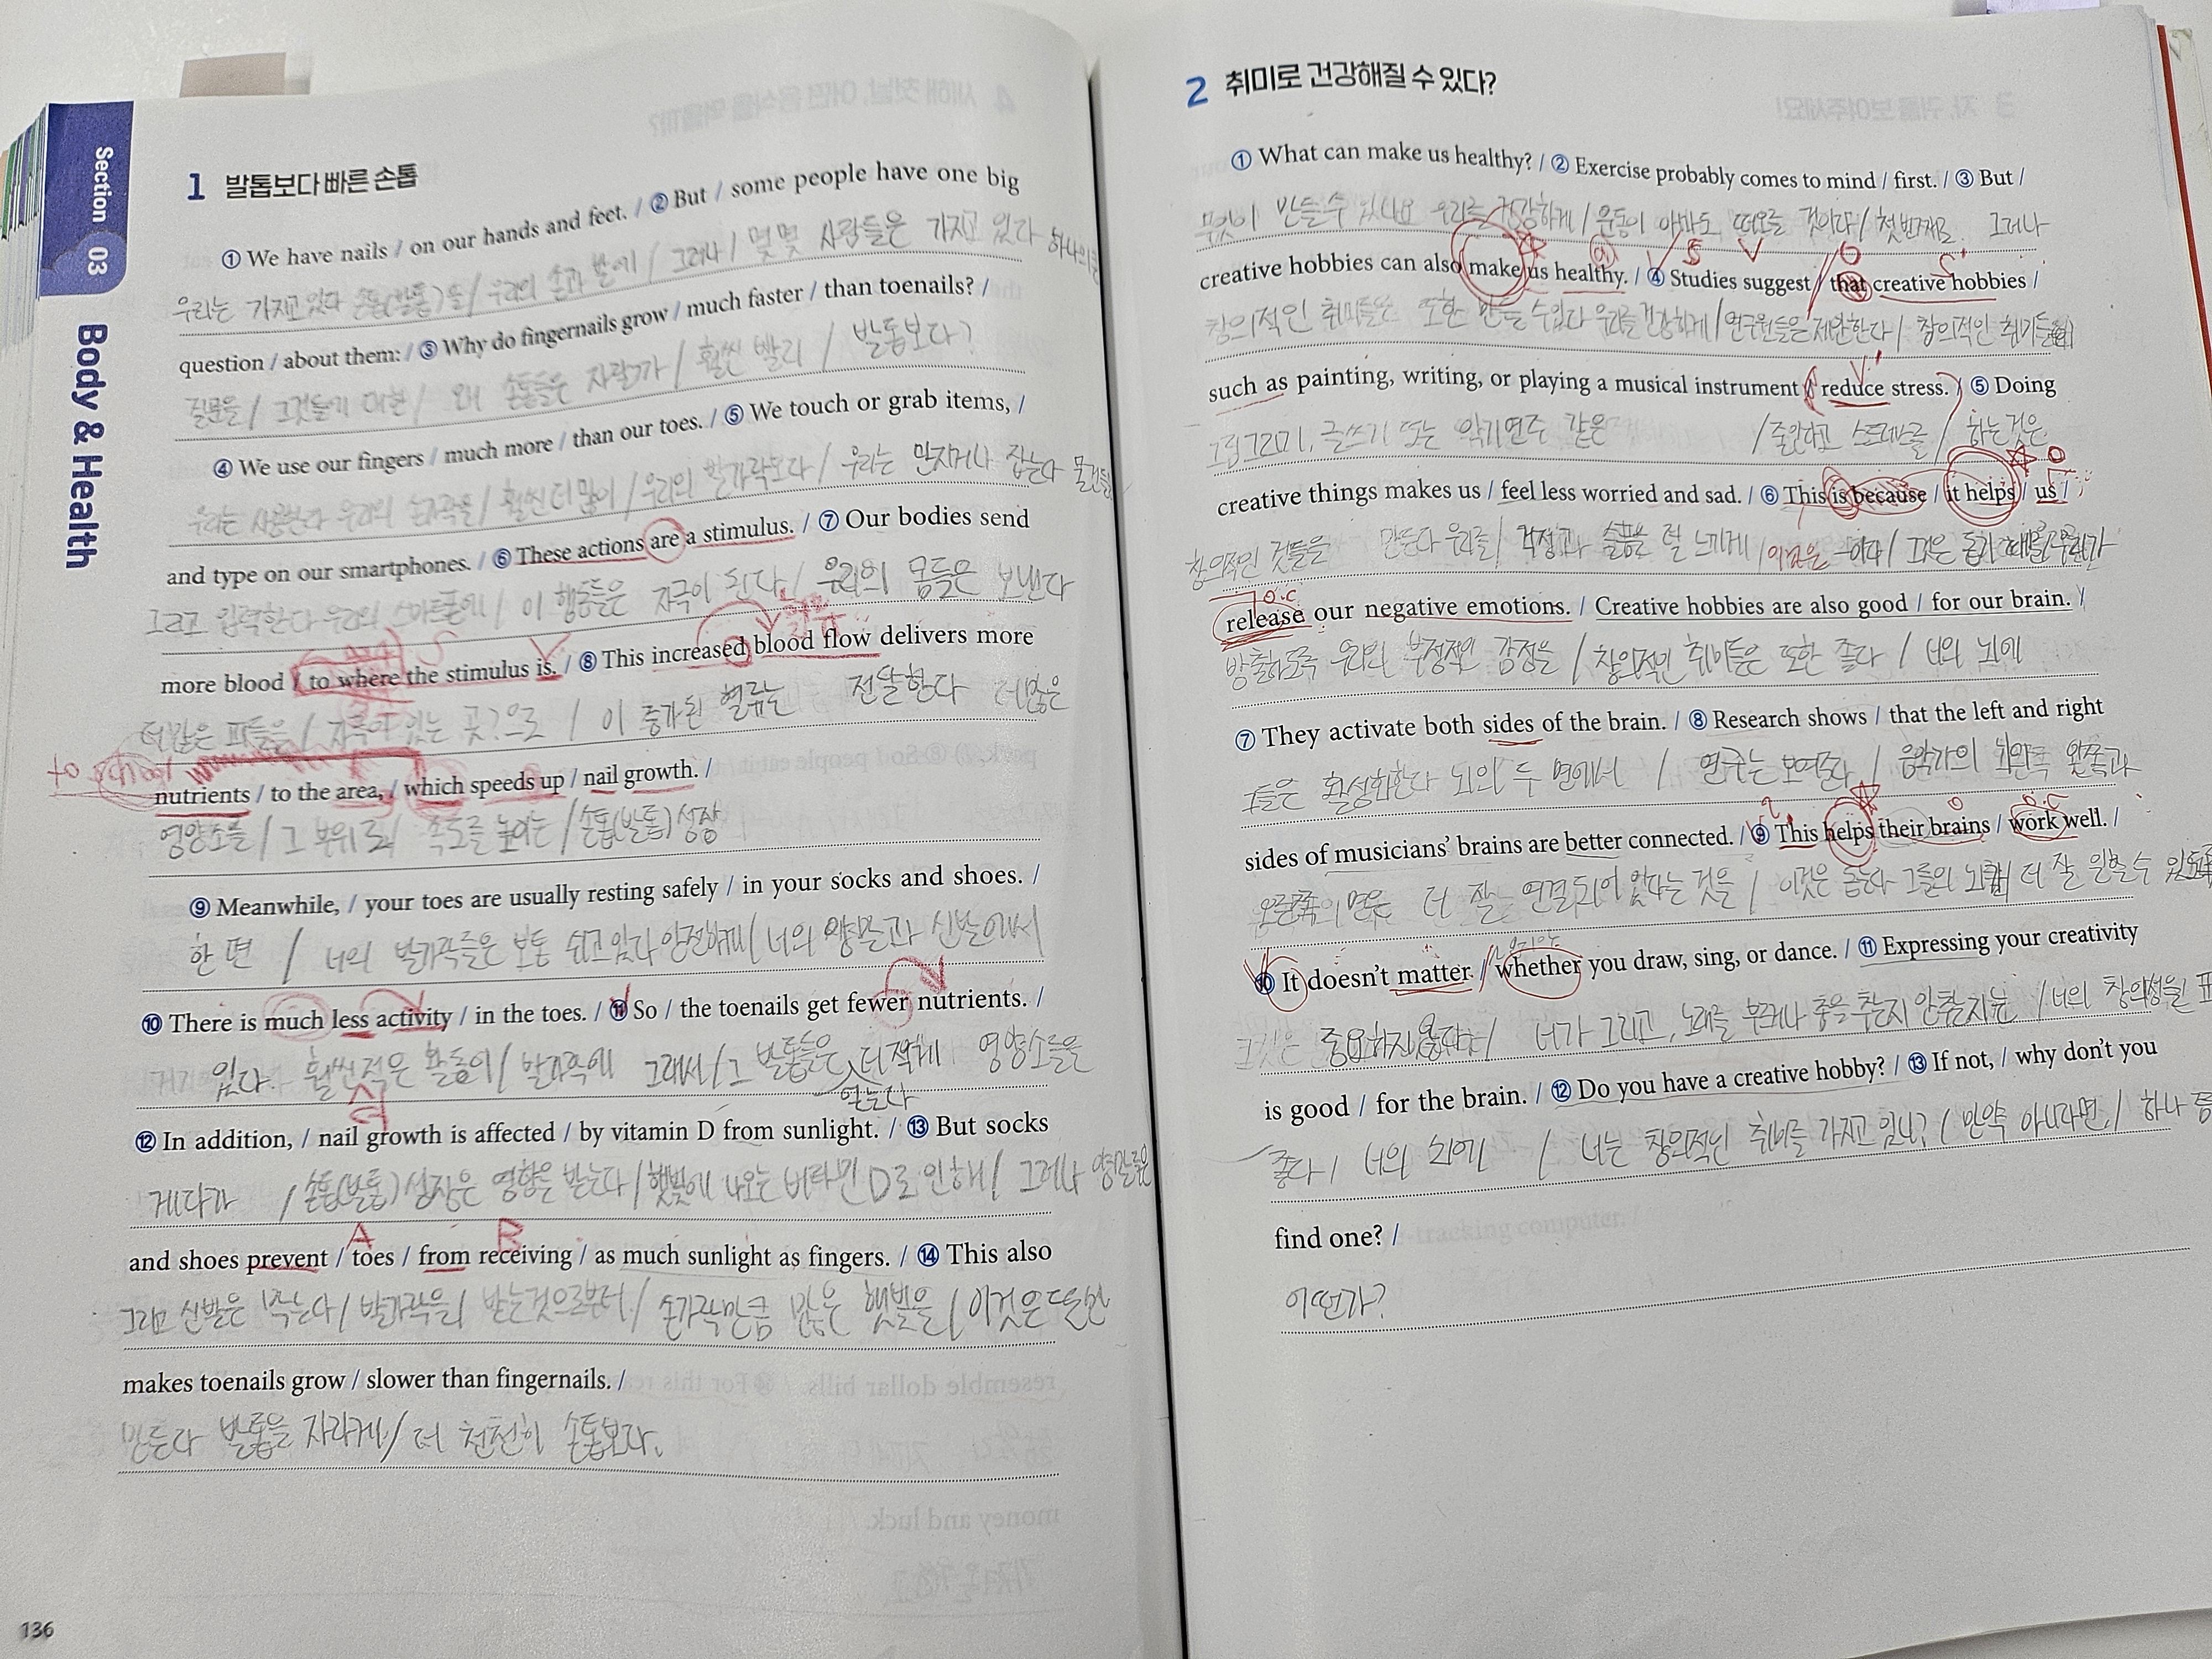 Section 03
Body & Health
1 발톱보다 빠른 손톱
① We have nails / on our hands and feet. / ② But / some people have one big
우리는 가지고 있다 손톱(발톱)을 / 우리의 손과 발에 / 그러나 / 몇몇 사람들은 가지고 있다 하나의 큰
question / about them: / ③ Why do fingernails grow / much faster / than toenails? /
질문을 / 그것들에 대한 / 왜 손톱들은 자랄까 / 훨씬 빨리 / 발톱보다?
④ We use our fingers / much more / than our toes. / ⑤ We touch or grab items, /
우리는 사용한다 우리의 손가락을 / 훨씬 더 많이 / 우리의 발가락보다 / 우리는 만지거나 잡는다 물건들
and type on our smartphones. / ⑥ These actions are a stimulus. / ⑦ Our bodies send
그리고 입력한다 우리의 스마트폰에 / 이 행동들은 자극이 된다. / 우리의 몸들은 보낸다
S V
more blood / to where the stimulus is. / ⑧ This increased blood flow delivers more
더 많은 피들을 / 자극이 있는 곳?으로 / 이 증가된 혈류는 전달한다 더 많은
to school
nutrients / to the area, / which speeds up / nail growth. /
영양소를 / 그 부위로 / 속도를 높이는 / 손톱(발톱) 성장
⑨ Meanwhile, / your toes are usually resting safely / in your socks and shoes. /
한 편 / 너의 발가락들은 보통 쉬고 있다 안전하게 / 너의 양말과 신발에서
⑩ There is much less activity / in the toes. / ⑪ So / the toenails get fewer nutrients. /
거기 있다. 훨씬 적은 활동이 / 발가락에 그래서 / 그 발톱들은 더 적게 영양소들을
얻는다
⑫ In addition, / nail growth is affected / by vitamin D from sunlight. / ⑬ But socks
게다가 / 손톱(발톱) 성장은 영향을 받는다 / 햇빛에 나오는 비타민 D로 인해 / 그러나 양말은
A B
and shoes prevent / toes / from receiving / as much sunlight as fingers. / ⑭ This also
그리고 신발은 막는다 / 발가락을 / 받는것으로부터 / 손가락만큼 많은 햇빛을 / 이것은 또한
makes toenails grow / slower than fingernails. /
만든다 발톱을 자라게 / 더 천천히 손톱보다.
136
2 취미로 건강해질 수 있다?
① What can make us healthy? / ② Exercise probably comes to mind / first. / ③ But /
무엇이 만들 수 있나요 우리를 건강하게 / 운동이 아마도 떠오를 것이다 / 첫 번째로. 그러나
S V O S'
creative hobbies can also make us healthy. / ④ Studies suggest / that creative hobbies /
창의적인 취미들은 또한 만들 수 있다 우리를 건강하게 / 연구원들은 제안한다 / 창의적인 취미들이
V'
such as painting, writing, or playing a musical instrument / reduce stress. / ⑤ Doing
그림그리기, 글쓰기 또는 악기연주 같은 / 줄인다고 스트레스를 / 하는 것은
O
creative things makes us / feel less worried and sad. / ⑥ This is because / it helps / us /
창의적인 것들은 만든다 우리를 / 걱정과 슬픔을 덜 느끼게 / 이것은 이다 / 그것은 돕기 때문 / 우리가
O.C
release our negative emotions. / Creative hobbies are also good / for our brain. /
방출하도록 우리의 부정적인 감정을 / 창의적인 취미들은 또한 좋다 / 너의 뇌에
⑦ They activate both sides of the brain. / ⑧ Research shows / that the left and right
그들은 활성화한다 뇌의 두 면에서 / 연구는 보여준다 / 음악가의 뇌 왼쪽과
O O.C
sides of musicians' brains are better connected. / ⑨ This helps their brains / work well. /
오른쪽의 면은 더 잘 연결되어 있다는 것을 / 이것은 돕는다 그들의 뇌가 더 잘 일할 수 있도록
⑩ It doesn't matter / whether you draw, sing, or dance. / ⑪ Expressing your creativity
그것은 중요하지 않다 / 너가 그리고, 노래를 부르거나 춤을 추는지 안추는지는 / 너의 창의성을 표
is good / for the brain. / ⑫ Do you have a creative hobby? / ⑬ If not, / why don't you
좋다 / 너의 뇌에 / 너는 창의적인 취미를 가지고 있니? / 만약 아니라면, / 하나
find one? /
어떤가?